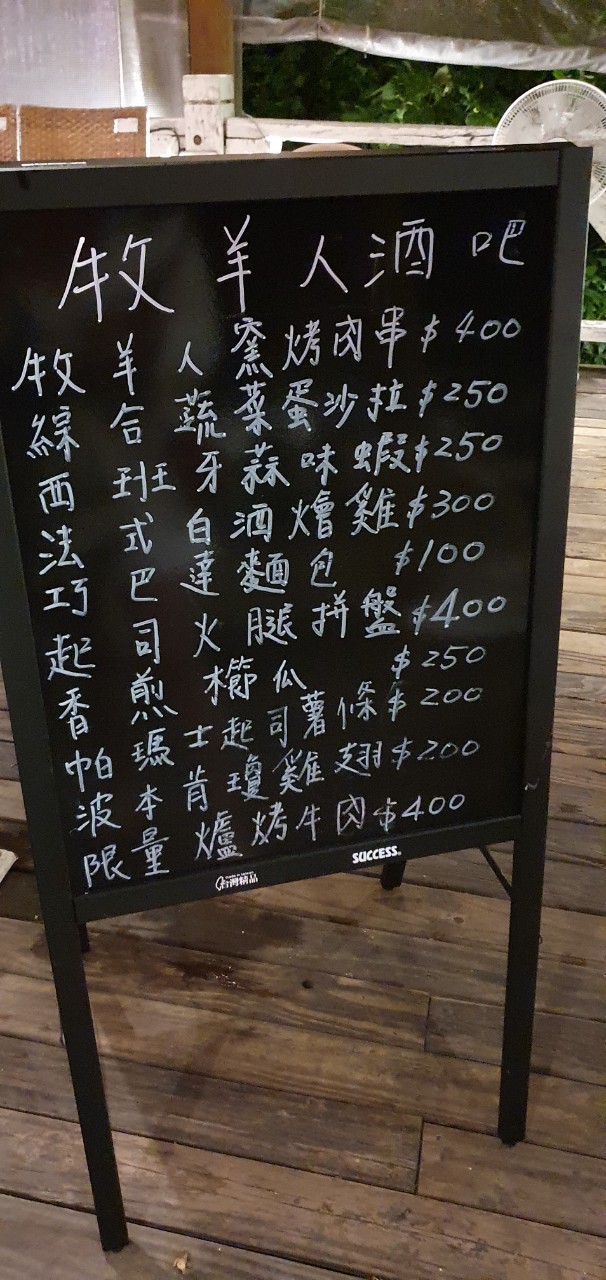 牧羊人酒吧
牧羊人窯烤肉串$400
綜合蔬菜蛋沙拉$250
西班牙蒜味蝦$250
法式白酒燴雞$300
巧巴達麵包$100
起司火腿拼盤$400
香煎櫛瓜$250
帕瑪士起司薯條$200
波本肯瓊雞翅$200
限量爐烤牛肉$400
台灣精品
SUCCESS